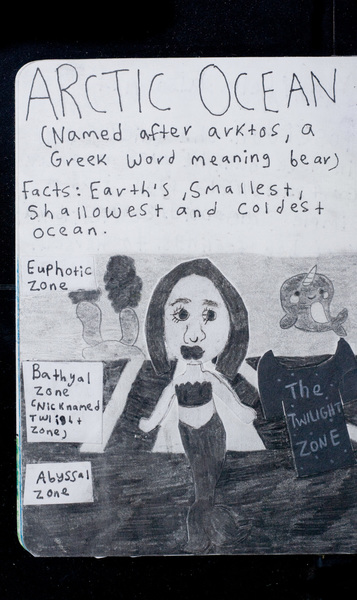 ARCTIC OCEAN
(Named after arktos, a
Greek word meaning bear)
Facts: Earth's, Smallest,
Shallowest and coldest
ocean.
Euphotic
Zone
Bathyal
Zone
(Nicknamed
Twilight
Zone)
The
TWILIGHT
ZONE
Abyssal
Zone